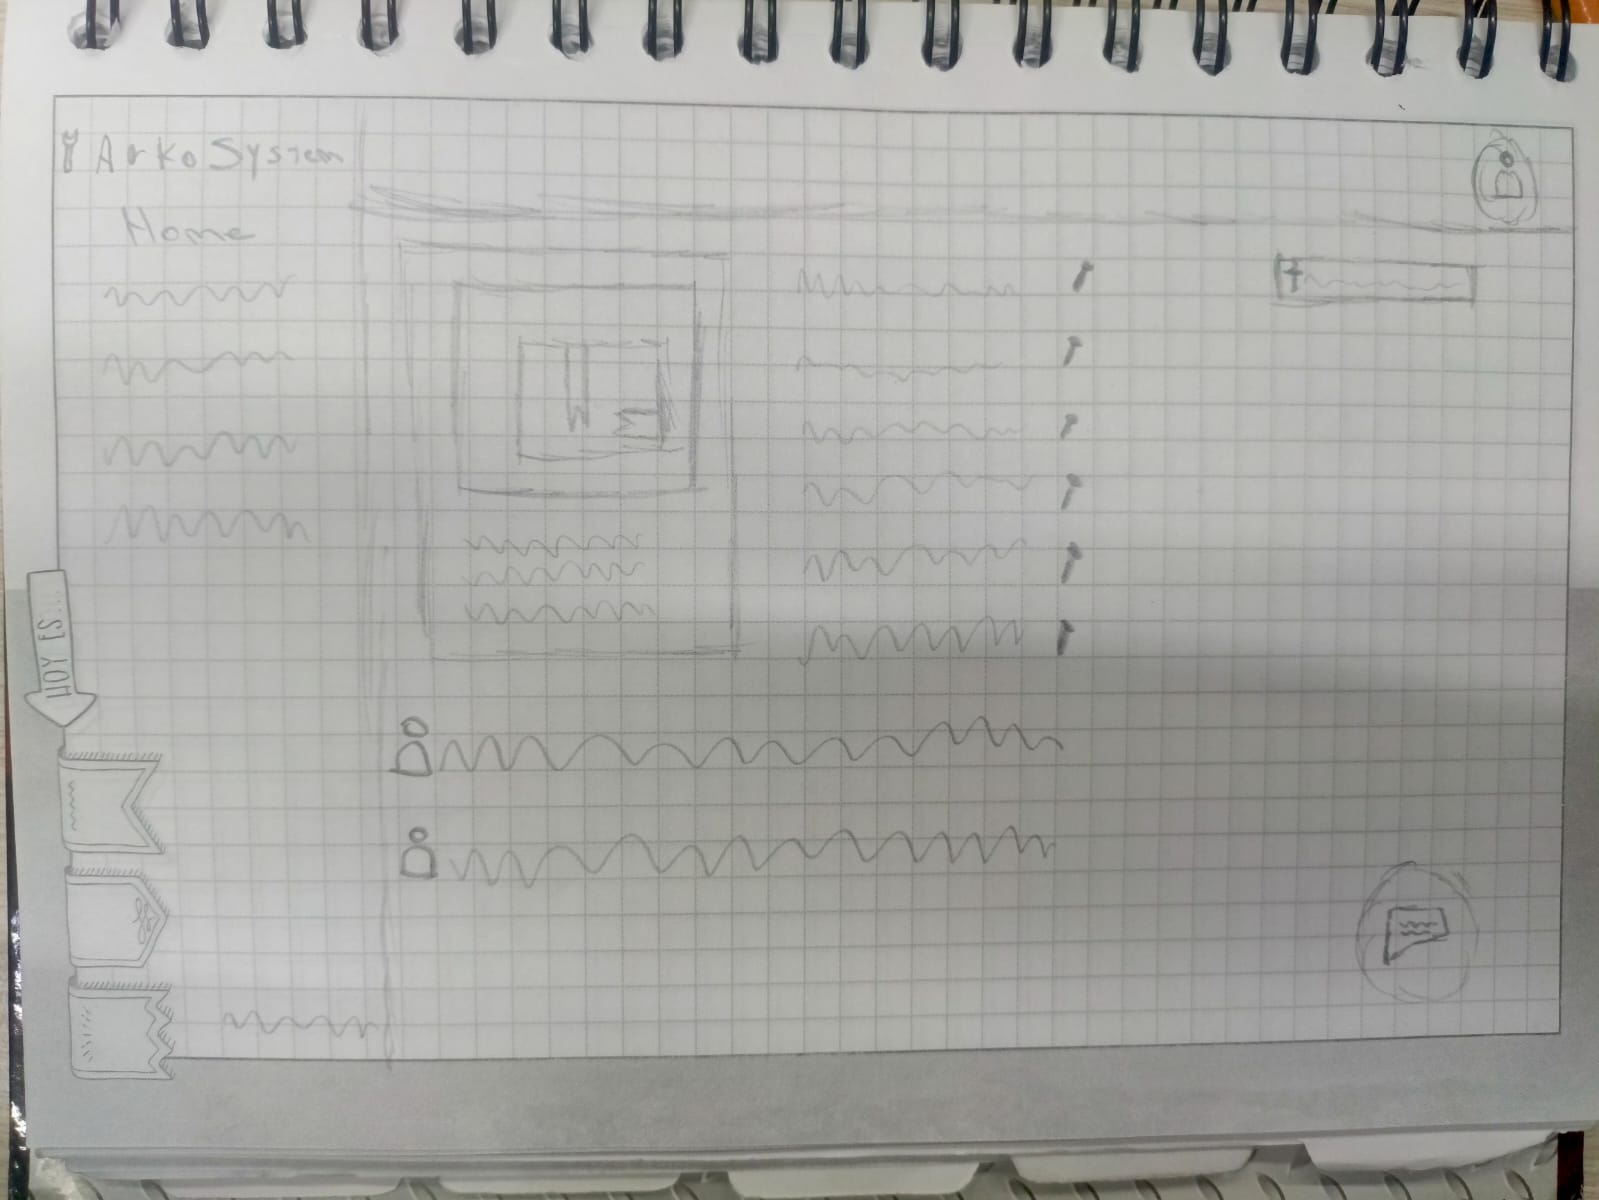 Arko System
Home
HOY ES...